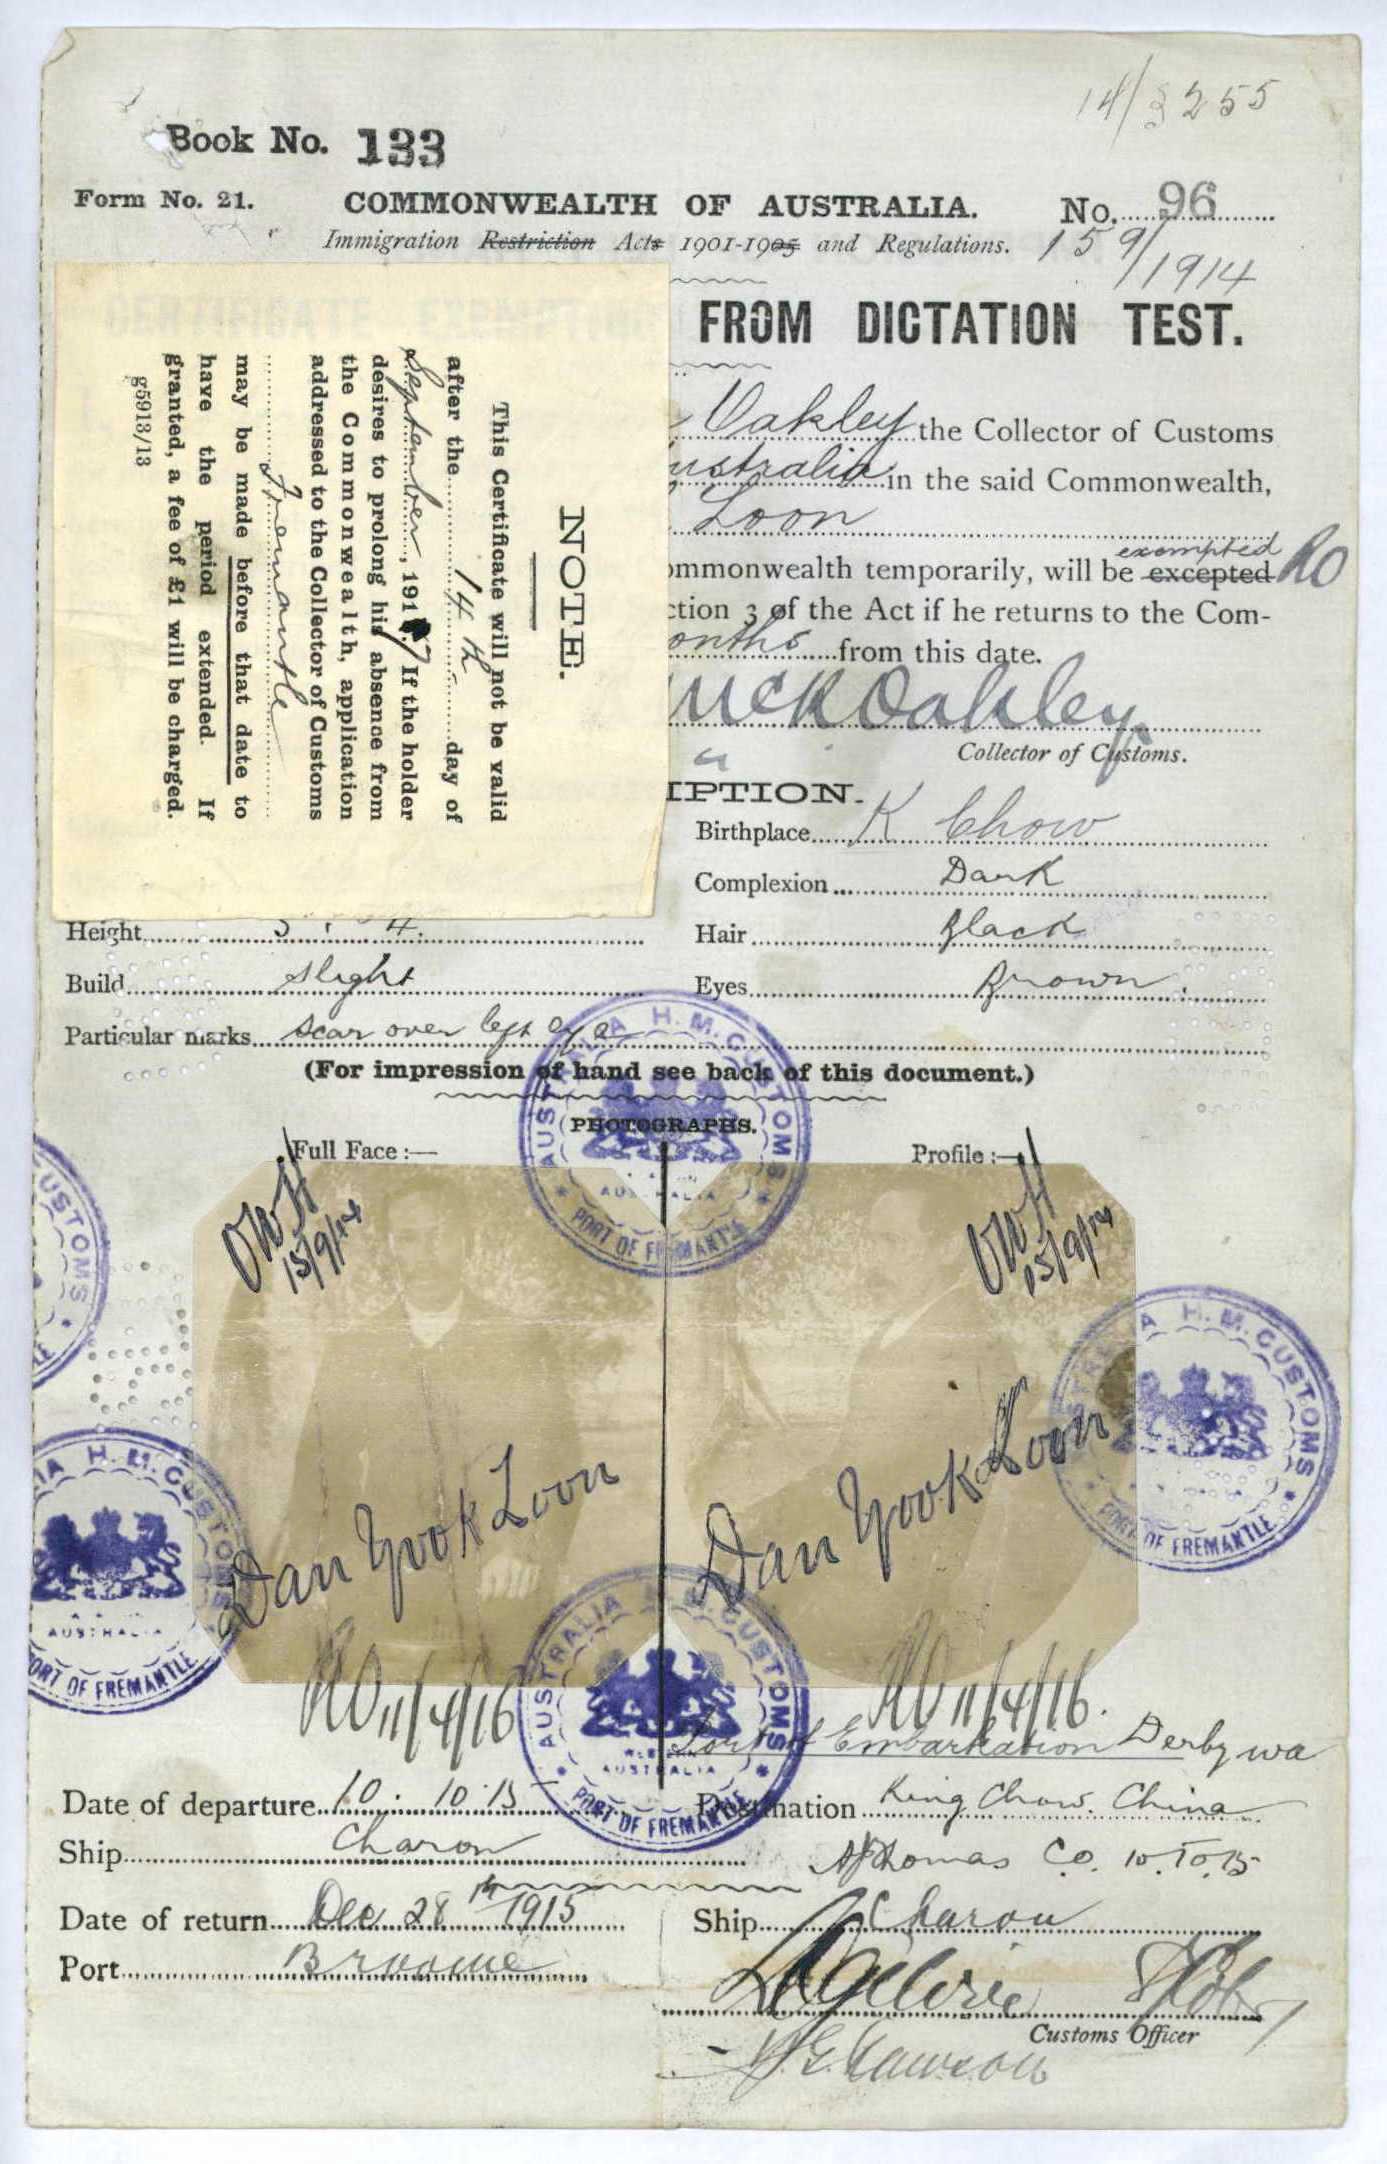 14/3255
Book No. 133
Form No. 21. COMMONWEALTH OF AUSTRALIA. No. 96
Immigration Restriction Acts 1901-1905 and Regulations. 15 9/1914
FROM DICTATION TEST.
Oakley the Collector of Customs
ustralia in the said Commonwealth,
Loon
ommonwealth temporarily, will be excepted exempted RO
ction 3 of the Act if he returns to the Com-
onths from this date.
Oakley
Collector of Customs.
NOTE.
This Certificate will not be valid
after the 14th day of
September, 1917. If the holder
desires to prolong his absence from
the Commonwealth, application
addressed to the Collector of Customs
Fremantle
may be made before that date to
have the period extended. If
granted, a fee of £1 will be charged.
g5913/13
IPTION.
Birthplace K Chow
Complexion Dark
Height 5 . 4. Hair Black
Build slight Eyes Brown.
Particular marks scar over left eye
(For impression of hand see back of this document.)
PHOTOGRAPHS.
Full Face :— Profile :—
OWH 15/9/14 OWH 15/9/14
AUSTRALIA H. M. CUSTOMS PORT OF FREMANTLE
Dan Yook Loon Dan Yook Loon
RO 11/4/16 RO 11/4/16.
Port of Embarkation Derby WA
Date of departure 10. 10. 15 Destination King Chow. China
Ship Charon AThomas C.O. 10.10.15
Date of return Dec 28th 1915 Ship Charon
Port Broome
Customs Officer